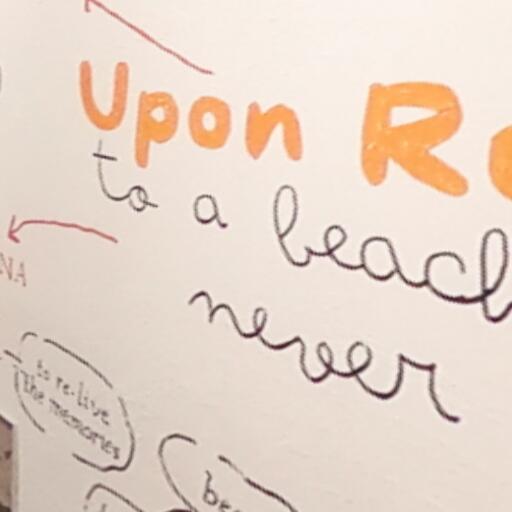 Upon
to a beach
never
NA
to re-live
the memories